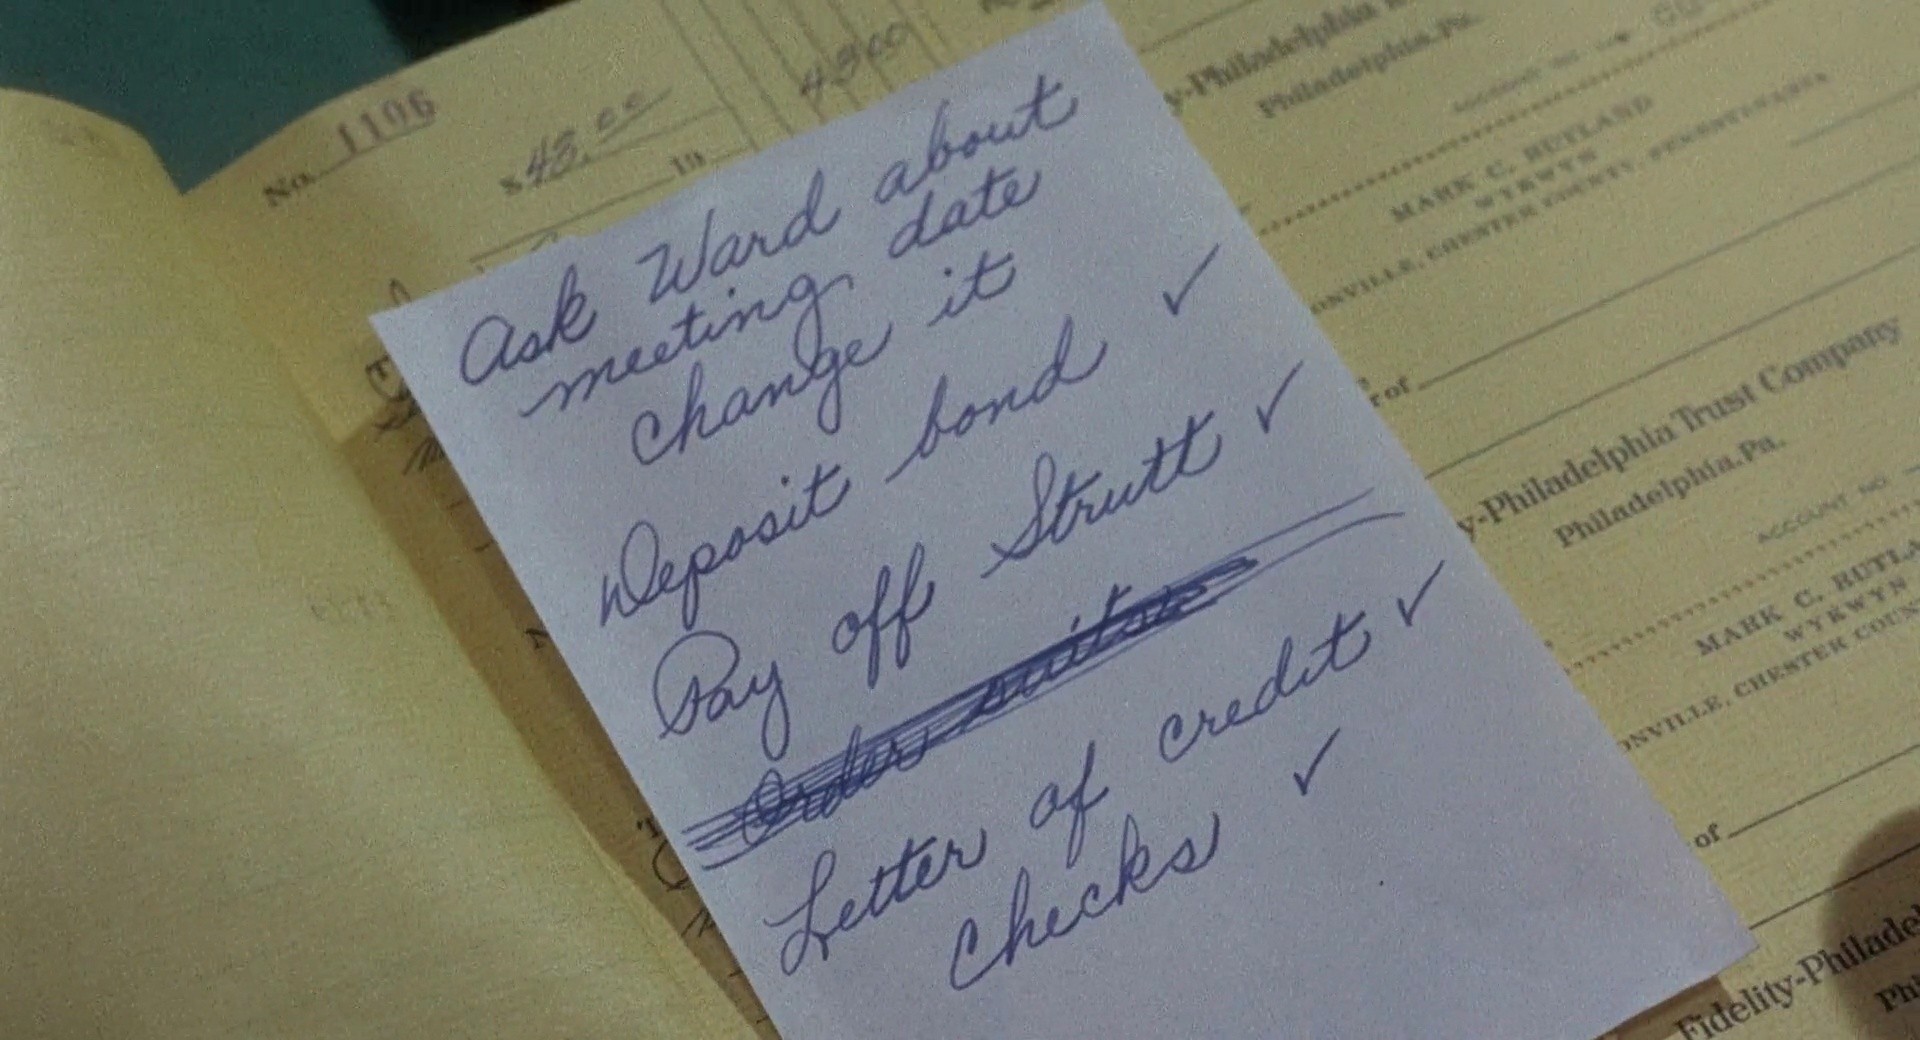 No. 1106
$ 48.00
19
4300
Ask Ward about
meeting date
change it
Deposit bond ✓
Pay off Strutt ✓
Order suitcase
Letter of credit ✓
checks ✓
y-Philadelphia
Philadelphia, Pa.
ACCOUNT NO.
MARK C. RUTLAND
WYKWYN
ONVILLE, CHESTER COUNTY, PENNSYLVANIA
r of
y-Philadelphia Trust Company
Philadelphia, Pa.
ACCOUNT NO.
MARK C. RUTLA
WYKWYN
ONVILLE, CHESTER COUN
of
Fidelity-Philadel
Phi